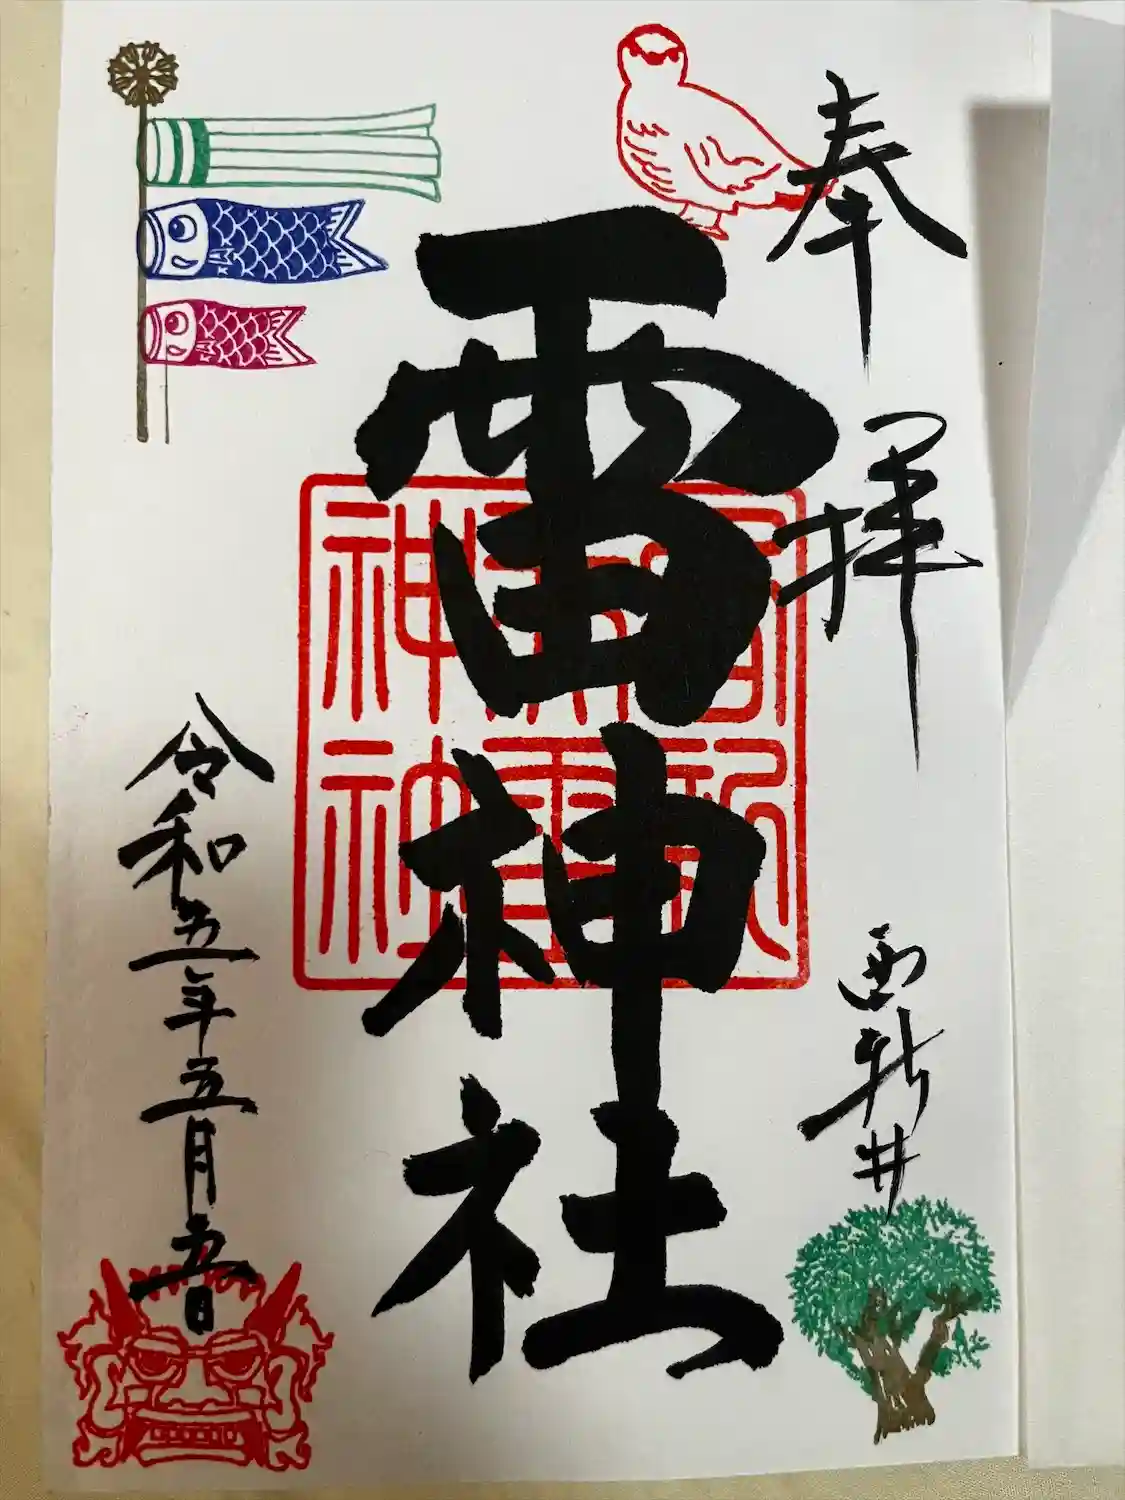 奉拝
西新井
雷神社
令和五年五月五日